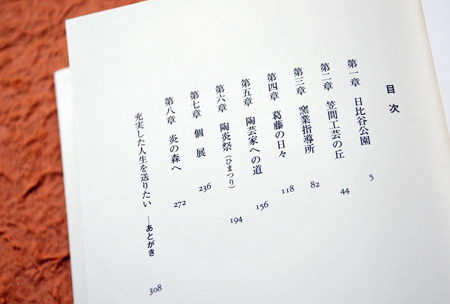 目次
第一章 日比谷公園 5
第二章 笠間工芸の丘 44
第三章 窯業指導所 82
第四章 葛藤の日々 118
第五章 陶芸家への道 156
第六章 陶炎祭(ひまつり) 194
第七章 個展 236
第八章 炎の森へ 272
充実した人生を送りたい ——あとがき 308